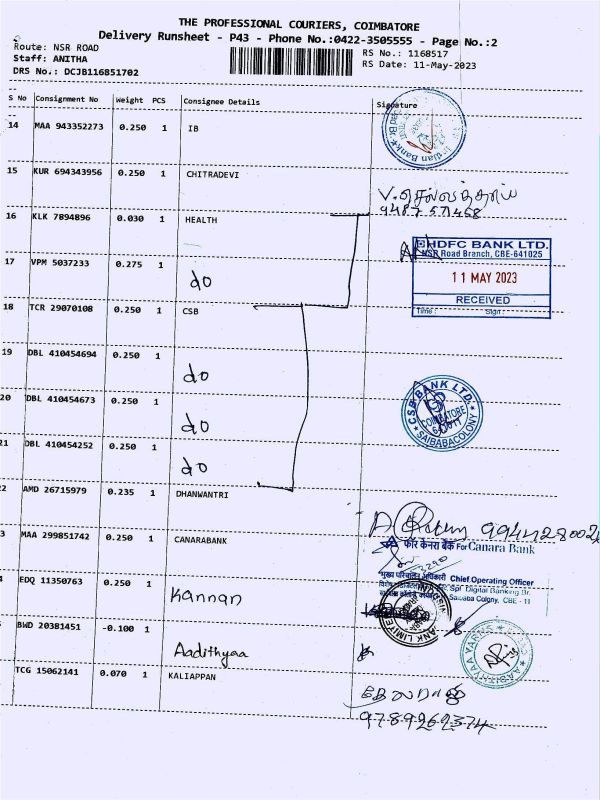 THE PROFESSIONAL COURIERS, COIMBATORE
Delivery Runsheet - P43 - Phone No.:0422-3505555 - Page No.:2
Route: NSR ROAD
RS No.: 1168517
Staff: ANITHA
RS Date: 11-May-2023
DRS No.: DCJB116851702
S No Consignment No Weight PCS Consignee Details Signature
14 MAA 943352273 0.250 1 IB
Indian Bank
15 KUR 694343956 0.250 1 CHITRADEVI
V. செல்லத்தாய்
16 KLK 7894896 0.030 1 HEALTH
HDFC BANK LTD.
NSR Road Branch, CBE-641025
11 MAY 2023
RECEIVED
Time : Sign :
17 VPM 5037233 0.275 1 do
18 TCR 29070108 0.250 1 CSB
19 DBL 410454694 0.250 1 do
20 DBL 410454673 0.250 1 do
CSB BANK LTD.
COIMBATORE
SAIBABACOLONY
21 DBL 410454252 0.250 1 do
2 AMD 26715979 0.235 1 DHANWANTRI
3 MAA 299851742 0.250 1 CANARABANK
फॉर केनरा बैंक For Canara Bank
Chief Operating Officer
Spl Digital Banking Br.
Saibaba Colony, CBE - 11
4 EDQ 11350763 0.250 1 Kannan
BANK LIMITED
5 BWD 20381451 -0.100 1 Aadithyaa
AADITHYAA YARNS
TCG 15062141 0.070 1 KALIAPPAN
9789262374